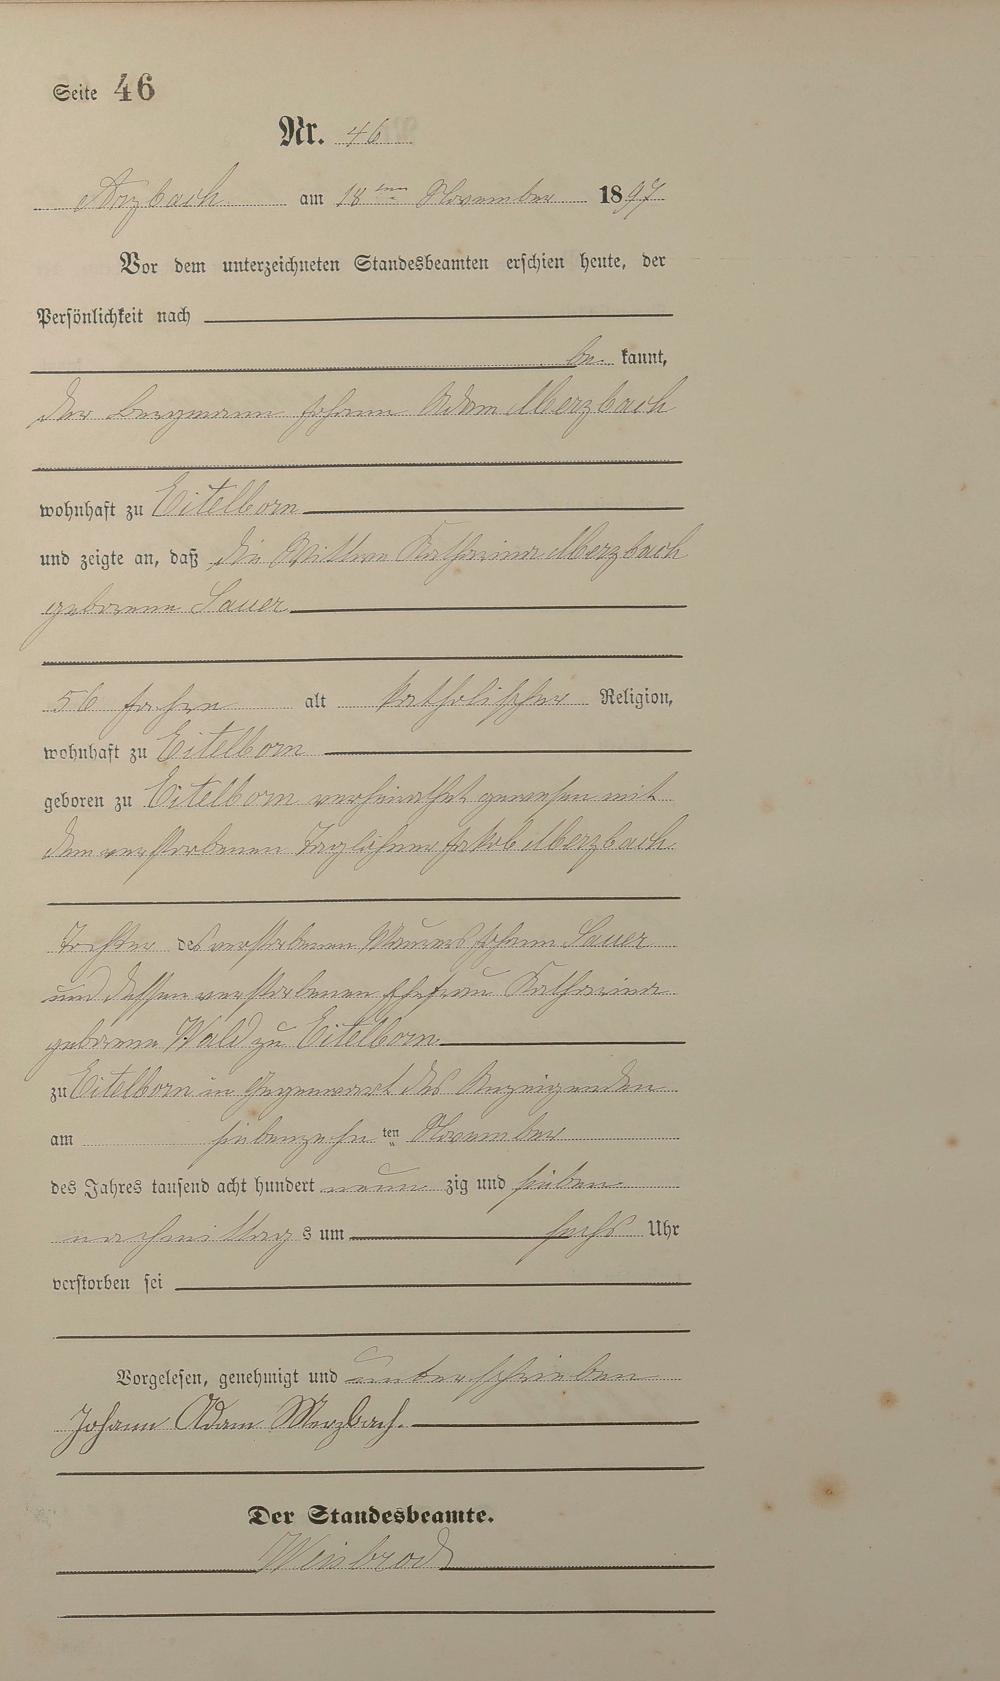 Seite 46
Nr. 46
Arzbach am 18ten November 1897
Vor dem unterzeichneten Standesbeamten erschien heute, der
Persönlichkeit nach
be kannt,
der Bergmann Johann Adam Merzbach
wohnhaft zu Eitelborn
und zeigte an, daß die Wittwe Katharina Merzbach
geborene Sauer
56 Jahre alt katholischer Religion,
wohnhaft zu Eitelborn
geboren zu Eitelborn verheirathet gewesen mit
dem verstorbenen Taglöhner Jakob Merzbach
Tochter des verstorbenen Maurers Johann Sauer
und dessen verstorbenen Ehefrau Katharina
geborene Wald zu Eitelborn
zu Eitelborn in Gegenwart des Anzeigenden
am siebenzehn ten November
des Jahres tausend acht hundert neun zig und sieben
nachmittag s um sechs Uhr
verstorben sei
Vorgelesen, genehmigt und unterschrieben
Johann Adam Merzbach.
Der Standesbeamte.
Weisbrod